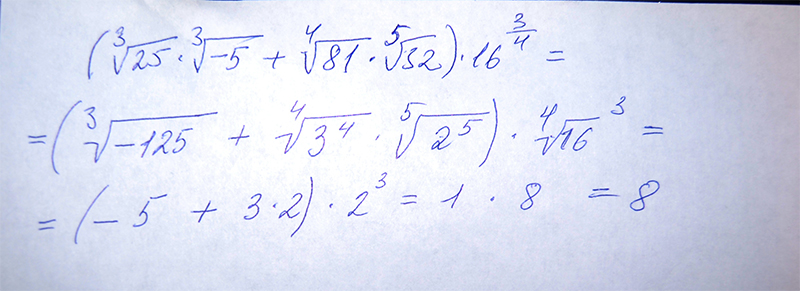 (∛25 · ∛-5 + ∜81 · ⁵√32) · 16^(3/4) =
= (∛-125 + ∜3⁴ · ⁵√2⁵) · ∜16³ =
= (-5 + 3·2) · 2³ = 1 · 8 = 8